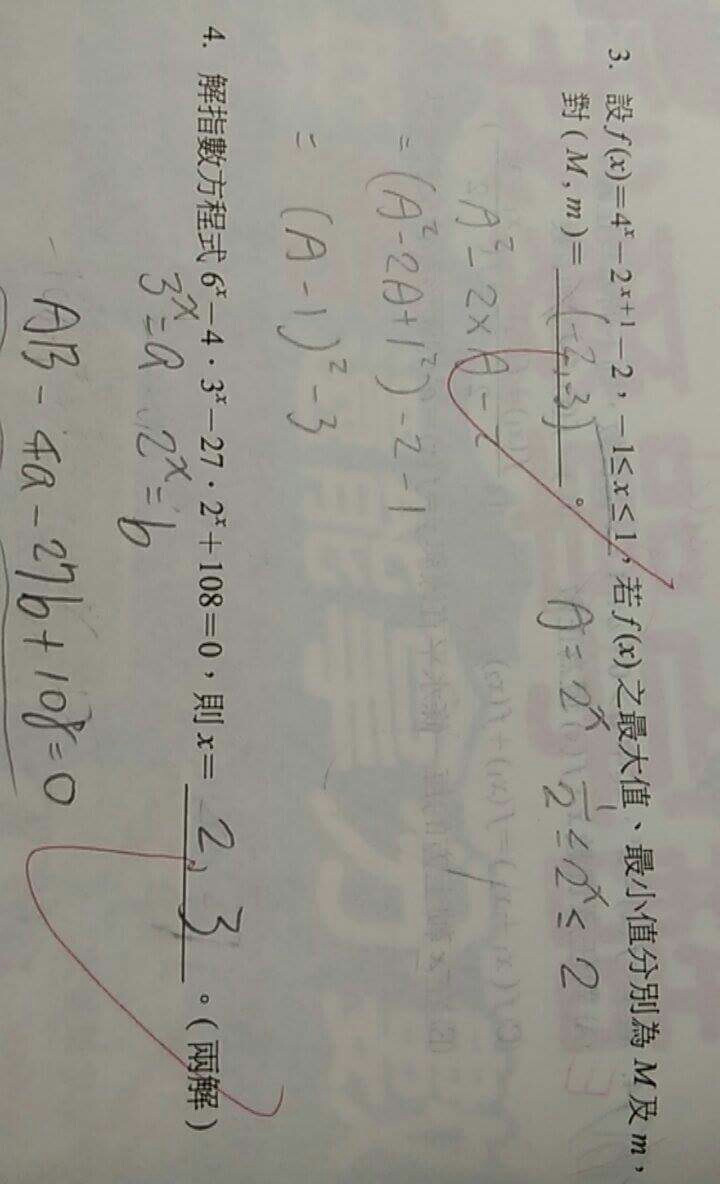 3. 設 f(x)=4^x−2^{x+1}−2，−1≤x≤1，若 f(x) 之最大值、最小值分別為 M 及 m，
對 (M, m)= (-2,-3) 。
A = 2^x 1/2 ≤ 2^x ≤ 2
A² - 2×A - 2
= (A² - 2A + 1²) - 2 - 1
= (A - 1)² - 3
4. 解指數方程式 6^x−4．3^x−27．2^x+108=0，則 x= 2, 3 。(兩解)
3^x = a 2^x = b
AB - 4a - 27b + 108 = 0